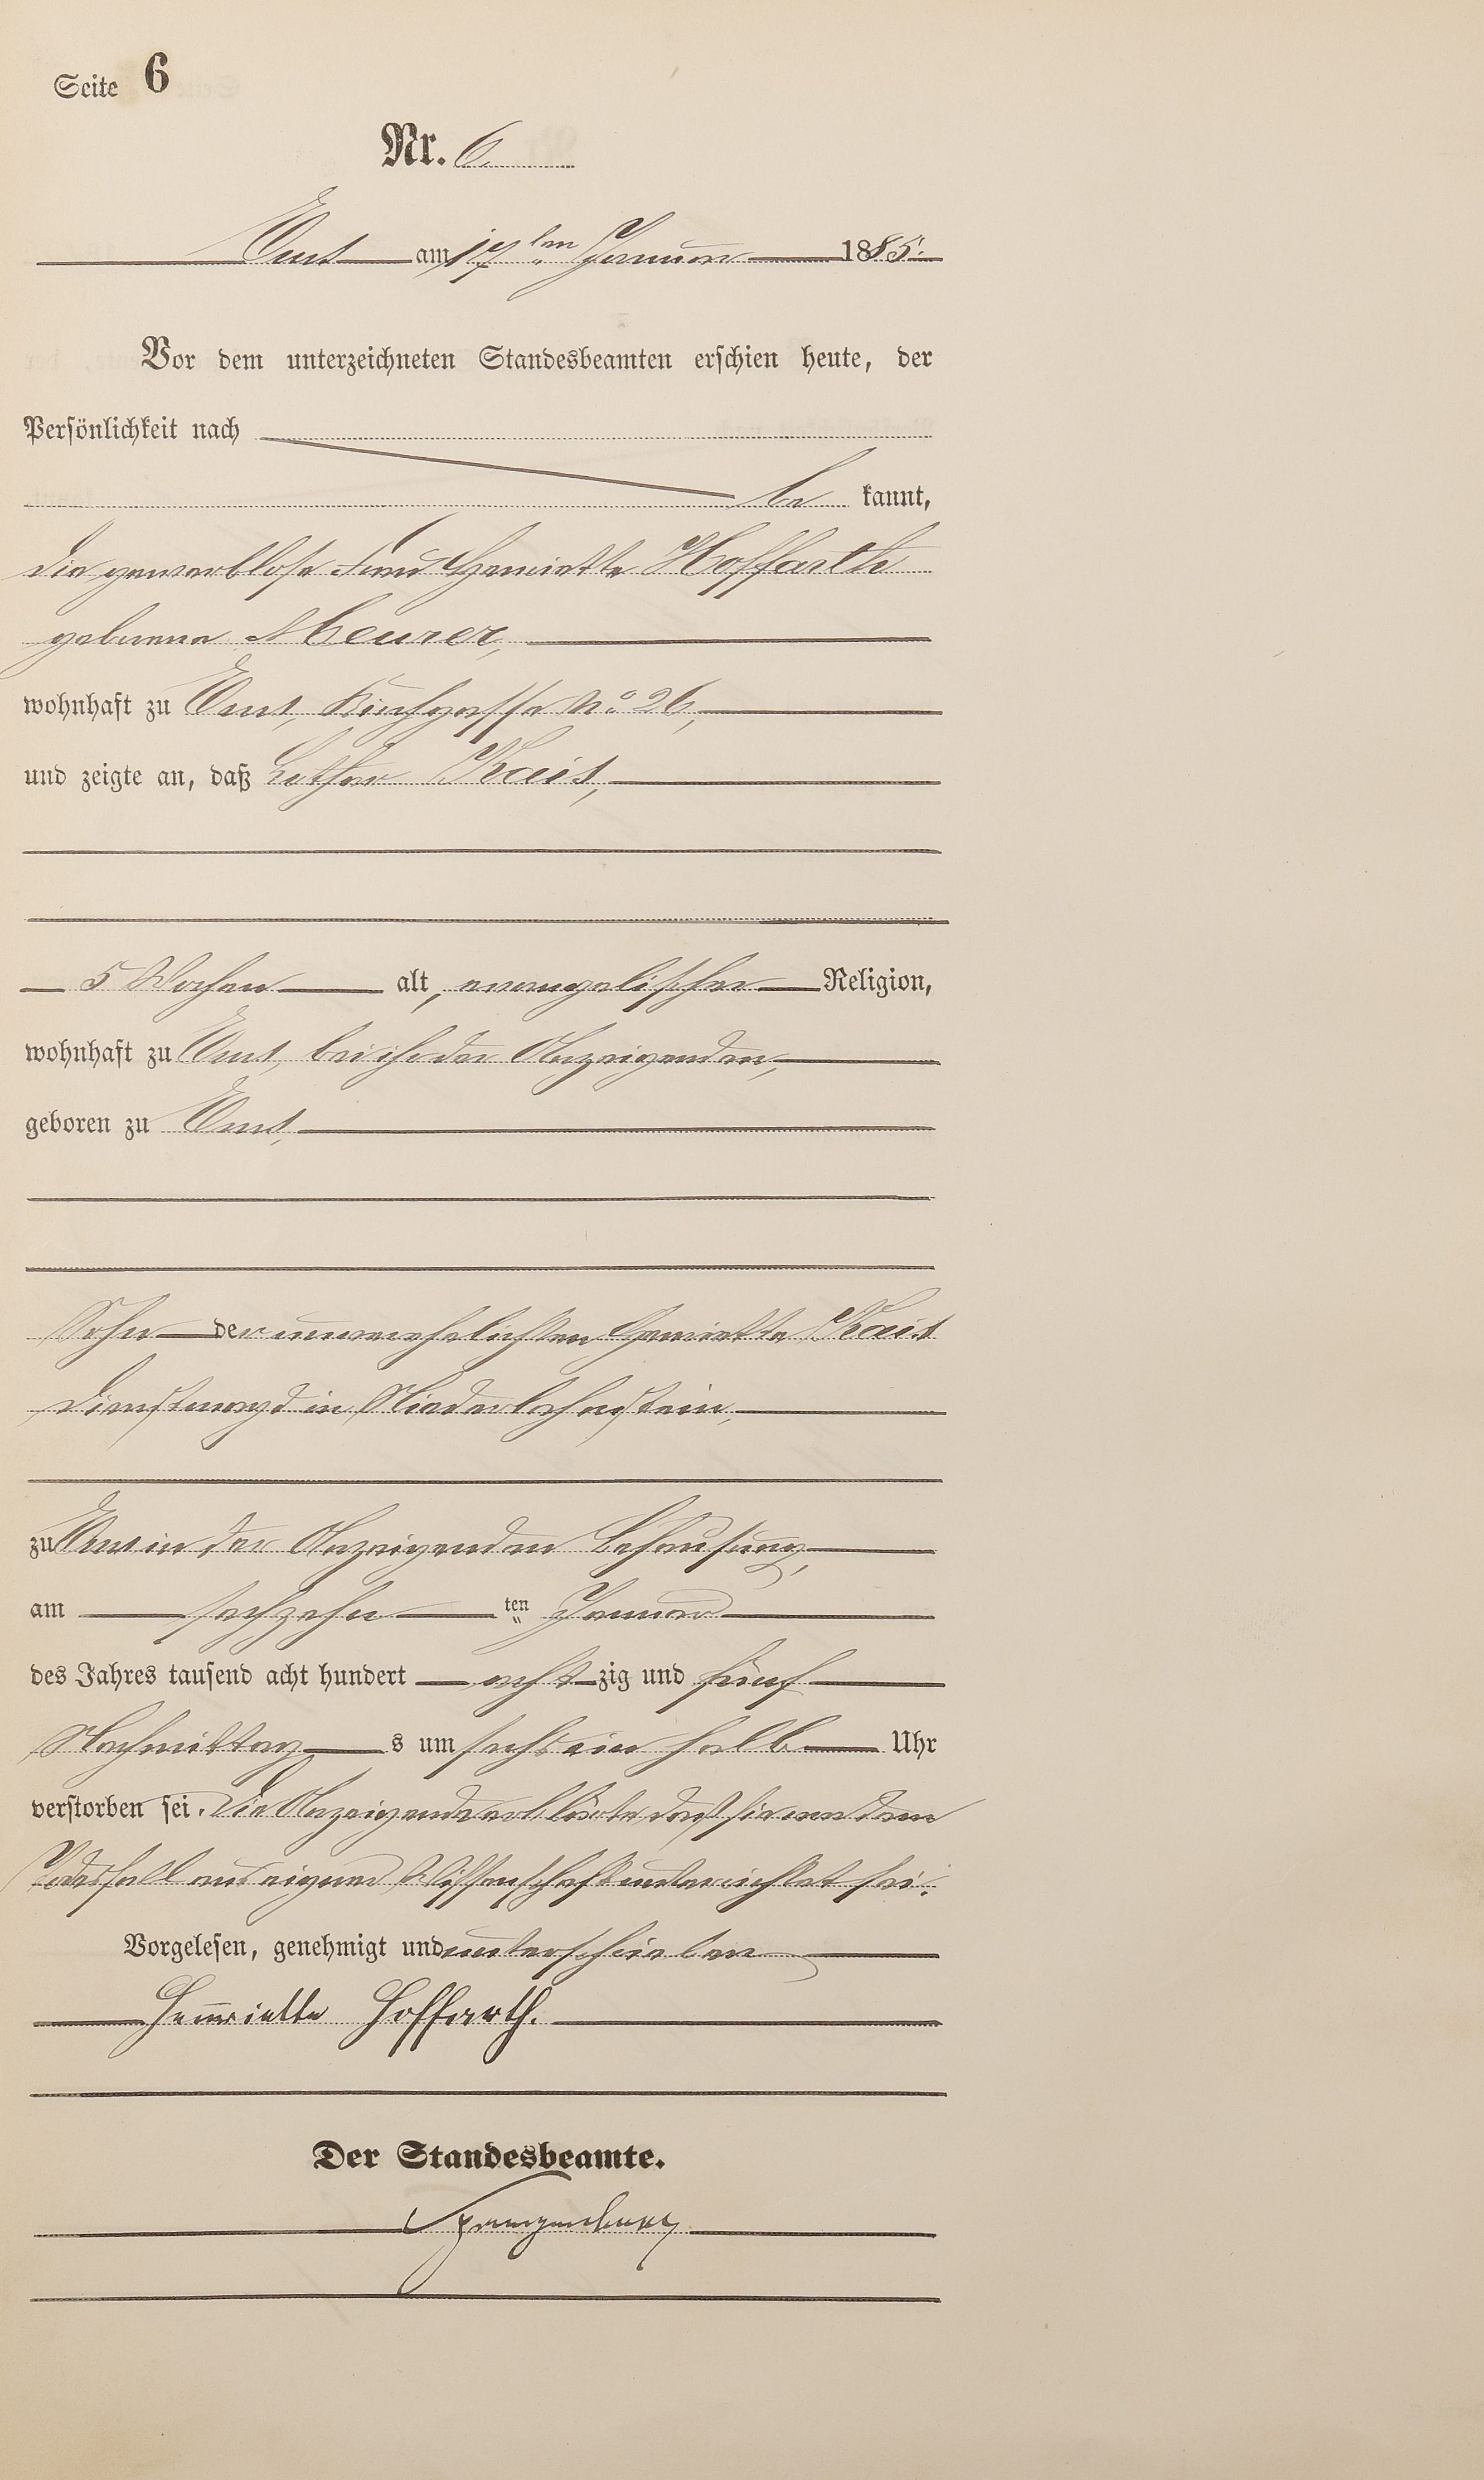 Seite 6
Nr. 6.
Ems am 17ten Januar 1885.
Vor dem unterzeichneten Standesbeamten erschien heute, der
Persönlichkeit nach
be kannt,
die gewerblose Frau Henriette Hoffarth
geborene Meurer,
wohnhaft zu Ems, Kirchgasse No 26,
und zeigte an, daß Lothar
5 Wochen alt, evangelischer Religion,
wohnhaft zu Ems, bei der Anzeigenden,
geboren zu Ems,
Sohn der unverehelichten Henriette
Dienstmagd in Niederlahnstein,
zu Ems in der Anzeigenden Behausung,
am sechzehn ten Januar
des Jahres tausend acht hundert acht zig und fünf
Nachmittag s um sechs ein halb Uhr
verstorben sei. Die Anzeigende erklärte daß sie von dem
Todesfall aus eigener Wissenschaft unterrichtet sei.
Vorgelesen, genehmigt und unterschrieben
Henriette Hoffarth.
Der Standesbeamte.
Spangenberg